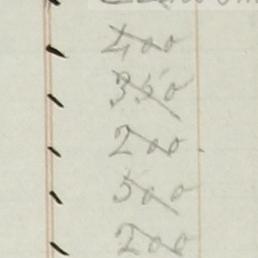 400
350
200.
500
200